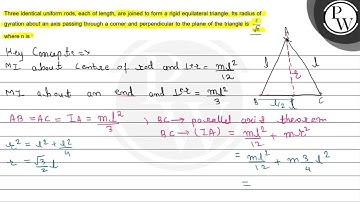 Three identical uniform rods, each of length, are joined to form a rigid equilateral triangle. Its radius of
gyration about an axis passing through a corner and perpendicular to the plane of the triangle is l/√n
where n is
Key Concepts =>
MI about centre of rod and ler = ml²/12
MI about an end and ler = ml²/3
AB = AC = IA = ml²/3 , BC → parallel axis theorem
BC → (IA) = ml²/12 + mr²
r² = l² + l²/4
= ml²/12 + m 3/4 l²
r = √3/2 l
=
A
l
l
r
B
l/2
C